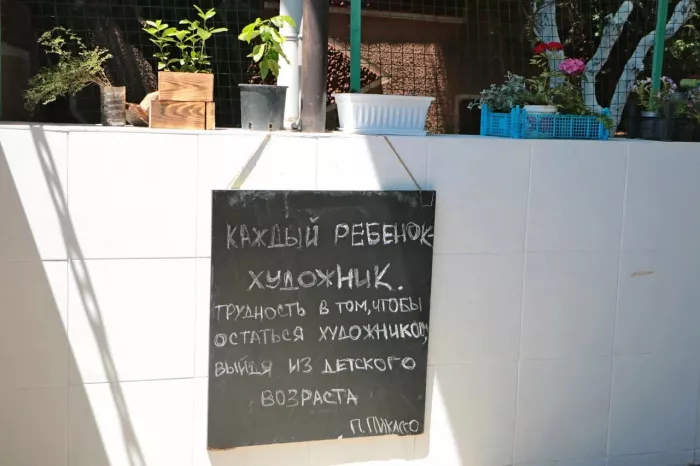 КАЖДЫЙ РЕБЕНОК-
ХУДОЖНИК.
ТРУДНОСТЬ В ТОМ, ЧТОБЫ
ОСТАТЬСЯ ХУДОЖНИКОМ,
ВЫЙДЯ ИЗ ДЕТСКОГО
ВОЗРАСТА
П. ПИКАССО